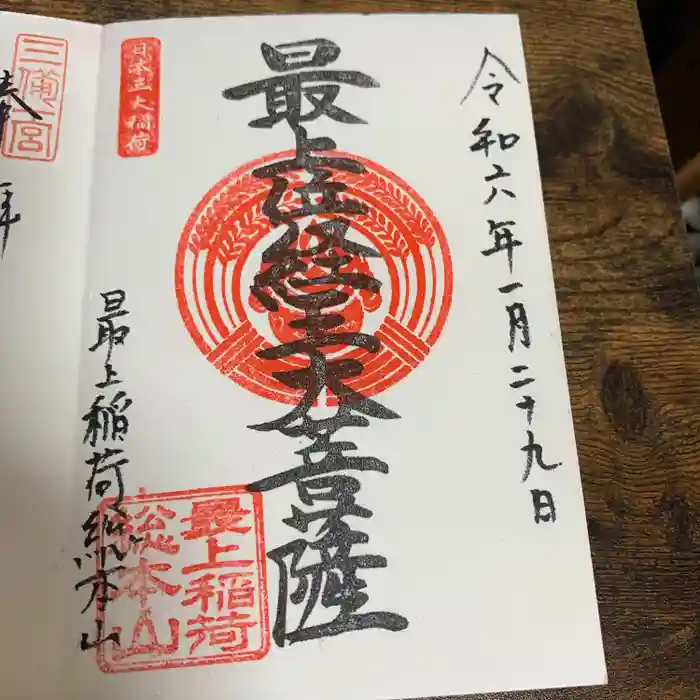 令和六年一月二十九日
日本三大稲荷
最上位経王大菩薩
最上稲荷
総本山
最上稲荷総本山
三備一宮
奉拝